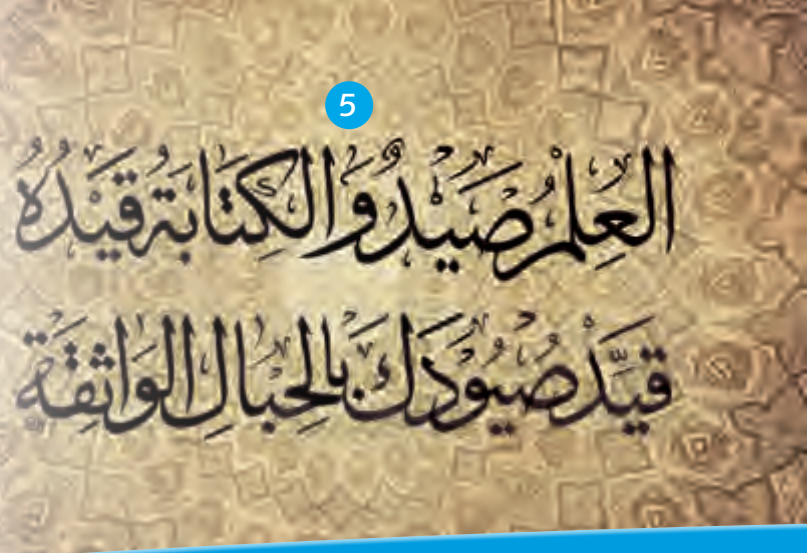 5
العِلْمُ صَيْدٌ وَالكِتَابَةُ قَيْدُهُ
قَيِّدْ صُيُودَكَ بِالحِبَالِ الوَاثِقَة